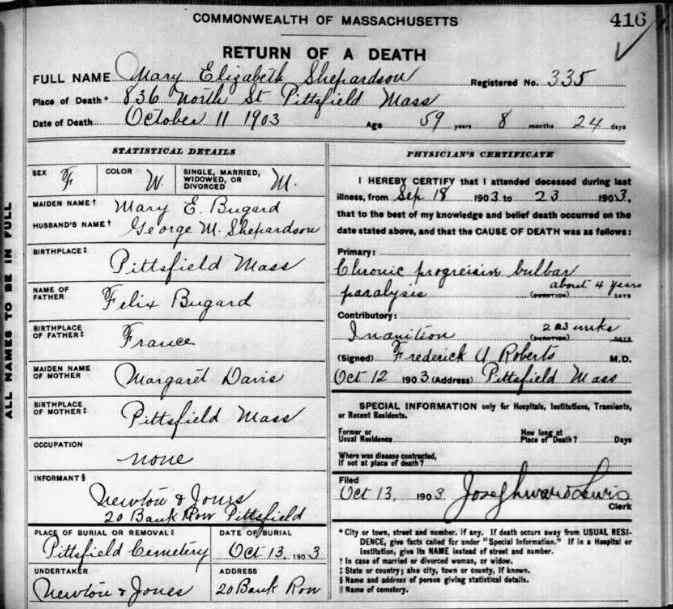 COMMONWEALTH OF MASSACHUSETTS
416
RETURN OF A DEATH
FULL NAME Mary Elizabeth Shepardson Registered No. 335
Place of Death* 836 North St Pittsfield Mass
Date of Death October 11 1903 Age 59 years 8 months 24 days
ALL NAMES TO BE IN FULL
STATISTICAL DETAILS
SEX F COLOR W. SINGLE, MARRIED, WIDOWED, OR DIVORCED M.
MAIDEN NAME† Mary E. Bugard
HUSBAND'S NAME† George M. Shepardson
BIRTHPLACE‡ Pittsfield Mass
NAME OF FATHER Felix Bugard
BIRTHPLACE OF FATHER‡ France
MAIDEN NAME OF MOTHER Margaret Davis
BIRTHPLACE OF MOTHER‡ Pittsfield Mass
OCCUPATION none
INFORMANT§ Newton & Jones
20 Bank Row Pittsfield
PLACE OF BURIAL OR REMOVAL‖ DATE OF BURIAL
Pittsfield Cemetery Oct 13, 1903
UNDERTAKER ADDRESS
Newton & Jones 20 Bank Row
PHYSICIAN'S CERTIFICATE
I HEREBY CERTIFY that I attended deceased during last
illness, from Sep 18 1903 to 23 1903,
that to the best of my knowledge and belief death occurred on the
date stated above, and that the CAUSE OF DEATH was as follows:
Primary:
Chronic bulbar
paralysis (DURATION) about 4 years DAYS
Contributory:
Inanition (DURATION) DAYS
(Signed) Frederick A Roberts M.D.
Oct 12 1903 (Address) Pittsfield Mass
SPECIAL INFORMATION only for Hospitals, Institutions, Transients,
or Recent Residents.
Former or Usual Residence How long at Place of Death? Days
Where was disease contracted,
if not at place of death?
Filed
Oct 13, 1903 Lewis
Clerk
* City or town, street and number, if any. If death occurs away from USUAL RESI-
DENCE, give facts called for under "Special Information." If in a Hospital or
Institution, give its NAME instead of street and number.
† In case of married or divorced woman, or widow.
‡ State or country; also city, town or county, if known.
§ Name and address of person giving statistical details.
‖ Name of cemetery.